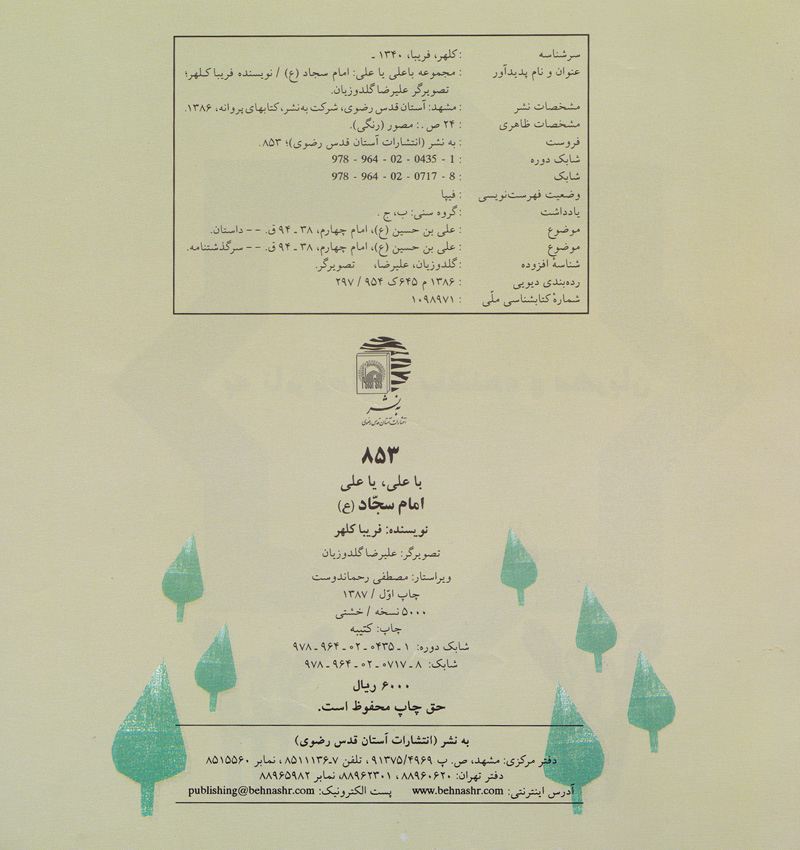 سرشناسه : کلهر، فریبا، ۱۳۴۰ ـ
عنوان و نام پدیدآور : مجموعه باعلی یا علی: امام سجاد (ع) / نویسنده فریبا کلهر؛
تصویرگر علیرضا گلدوزیان.
مشخصات نشر : مشهد: آستان قدس رضوی، شرکت به‌نشر، کتابهای پروانه، ۱۳۸۶.
مشخصات ظاهری : ۲۴ ص.: مصور (رنگی).
فروست : به نشر (انتشارات آستان قدس رضوی)؛ ۸۵۳.
شابک دوره : 978 - 964 - 02 - 0435 - 1
شابک : 978 - 964 - 02 - 0717 - 8
وضعیت فهرست‌نویسی : فیپا
یادداشت : گروه سنی: ب، ج.
موضوع : علی بن حسین (ع)، امام چهارم، ۳۸ ـ ۹۴ ق. -- داستان.
موضوع : علی بن حسین (ع)، امام چهارم، ۳۸ ـ ۹۴ ق. -- سرگذشتنامه.
شناسهٔ افزوده : گلدوزیان، علیرضا، تصویرگر.
رده‌بندی دیویی : ۱۳۸۶ م ۶۴۵ ک ۹۵۴ / ۲۹۷
شمارهٔ کتابشناسی ملّی : ۱۰۹۸۹۷۱
به نشر
انتشارات آستان قدس رضوی
۸۵۳
با علی، یا علی
امام سجّاد (ع)
نویسنده: فریبا کلهر
تصویرگر: علیرضا گلدوزیان
ویراستار: مصطفی رحماندوست
چاپ اوّل / ۱۳۸۷
۵۰۰۰ نسخه / خشتی
چاپ: کتیبه
شابک دوره: ۱ ـ ۰۴۳۵ ـ ۰۲ ـ ۹۶۴ ـ ۹۷۸
شابک: ۸ ـ ۰۷۱۷ ـ ۰۲ ـ ۹۶۴ ـ ۹۷۸
۶۰۰۰ ریال
حق چاپ محفوظ است.
به نشر (انتشارات آستان قدس رضوی)
دفتر مرکزی: مشهد، ص. پ ۹۱۳۷۵/۴۹۶۹، تلفن ۷ـ۸۵۱۱۱۳۶، نمابر ۸۵۱۵۵۶۰
دفتر تهران: ۸۸۹۶۰۶۲۰، ۸۸۹۶۲۳۰۱، نمابر ۸۸۹۶۵۹۸۲
آدرس اینترنتی: www.behnashr.com پست الکترونیک: publishing@behnashr.com